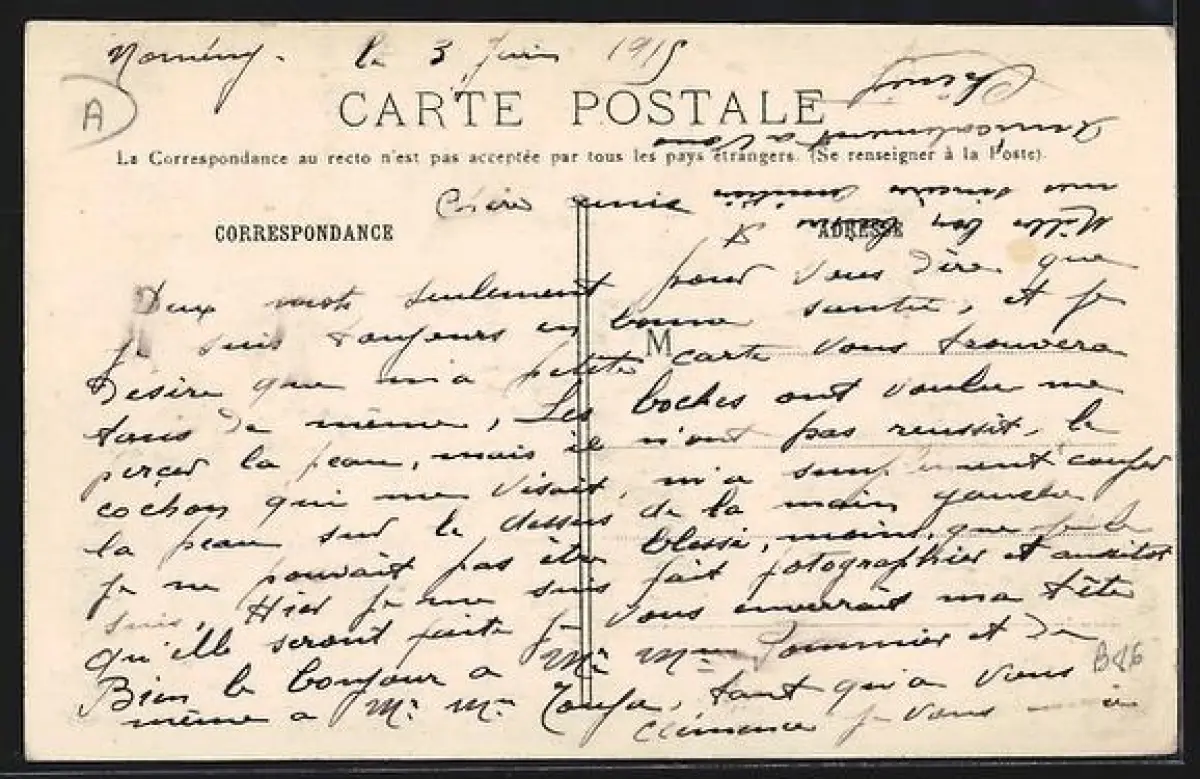 Nomény. le 3 Juin 1915
A
CARTE POSTALE
La Correspondance au recto n'est pas acceptée par tous les pays étrangers. (Se renseigner à la Poste).
Chère amie
CORRESPONDANCE
ADRESSE
Deux mots seulement pour vous dire que
je suis toujours en bonne santée, et je
désire que m'a petite carte vous trouvera
M
tous de même, Les boches ont voulu me
percer la peau, mais il n'ont pas reussit, le
cochon qui me visait, m'a simplement couper
la peau sur le dessus de la main gauche
je ne pouvait pas être blessé, moins, que je le
suis, Hier je me suis fait fotographier et aussitot
qu'elle seront faite je vous enverrait ma tête
Bien le bonjour a Mr Mme Pommier et de
même a Mr Mme, tant qu'a vous
Clémence je vous
B86
Mille bon
amicalement a vous